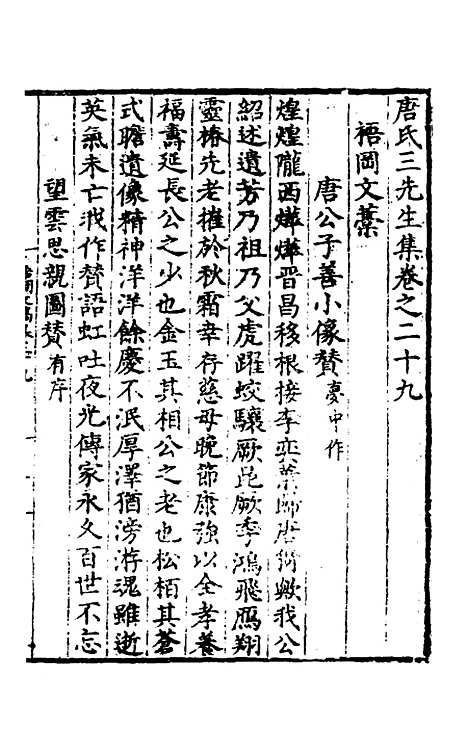 唐氏三先生集卷之二十九
梧岡文藁
唐公子善小像贊夢中作
煌煌隴西燁燁晉昌移根接李奕葉師唐猗歟我公
紹述遺芳乃祖乃父虎躍蛟驤厥昆厥季鴻飛鴈翔
靈椿先老摧於秋霜幸存慈母晚節康強以全孝養
福壽延長公之少也金玉其相公之老也松栢其蒼
式瞻遺像精神洋洋餘慶不泯厚澤猶滂游魂雖逝
英氣未亡我作賛語虹吐夜光傳家永久百世不忘
望雲思親圖賛有序